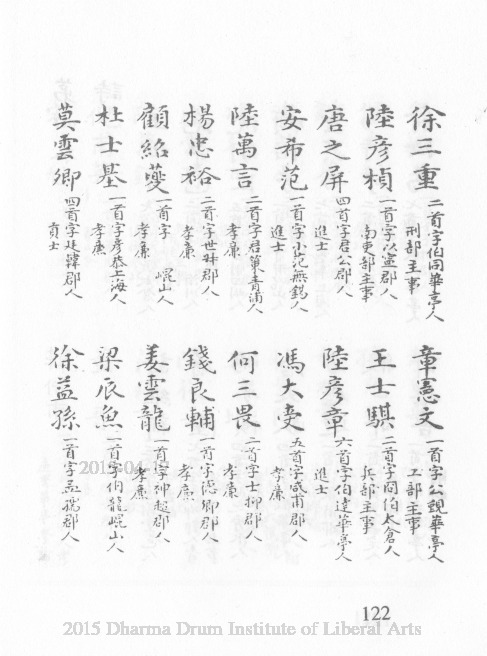 徐三重 二首字伯同華亭人刑部主事
陸彥楨 一首字以寧郡人南吏部主事
唐之屏 四首字君公郡人進士
安希范 一首字小范無錫人進士
陸萬言 二首字君策青浦人孝廉
楊忠裕 二首字世叔郡人孝廉
顧紹夔 一首字 崐山人孝廉
杜士基 一首字彥恭上海人孝廉
莫雲卿 四首字廷韓郡人貢士
章憲文 一首字公覲華亭人工部主事
王士騏 二首字冏伯太倉人兵部主事
陸彥章 六首字伯達華亭人進士
馮大受 五首字咸甫郡人孝廉
何三畏 二首字士抑郡人孝廉
錢良輔 一首字德卿郡人孝廉
姜雲龍 一首字神超郡人孝廉
梁辰魚 一首字伯龍崐山人
徐益孫 一首字孟孺郡人
122
2015 Dharma Drum Institute of Liberal Arts